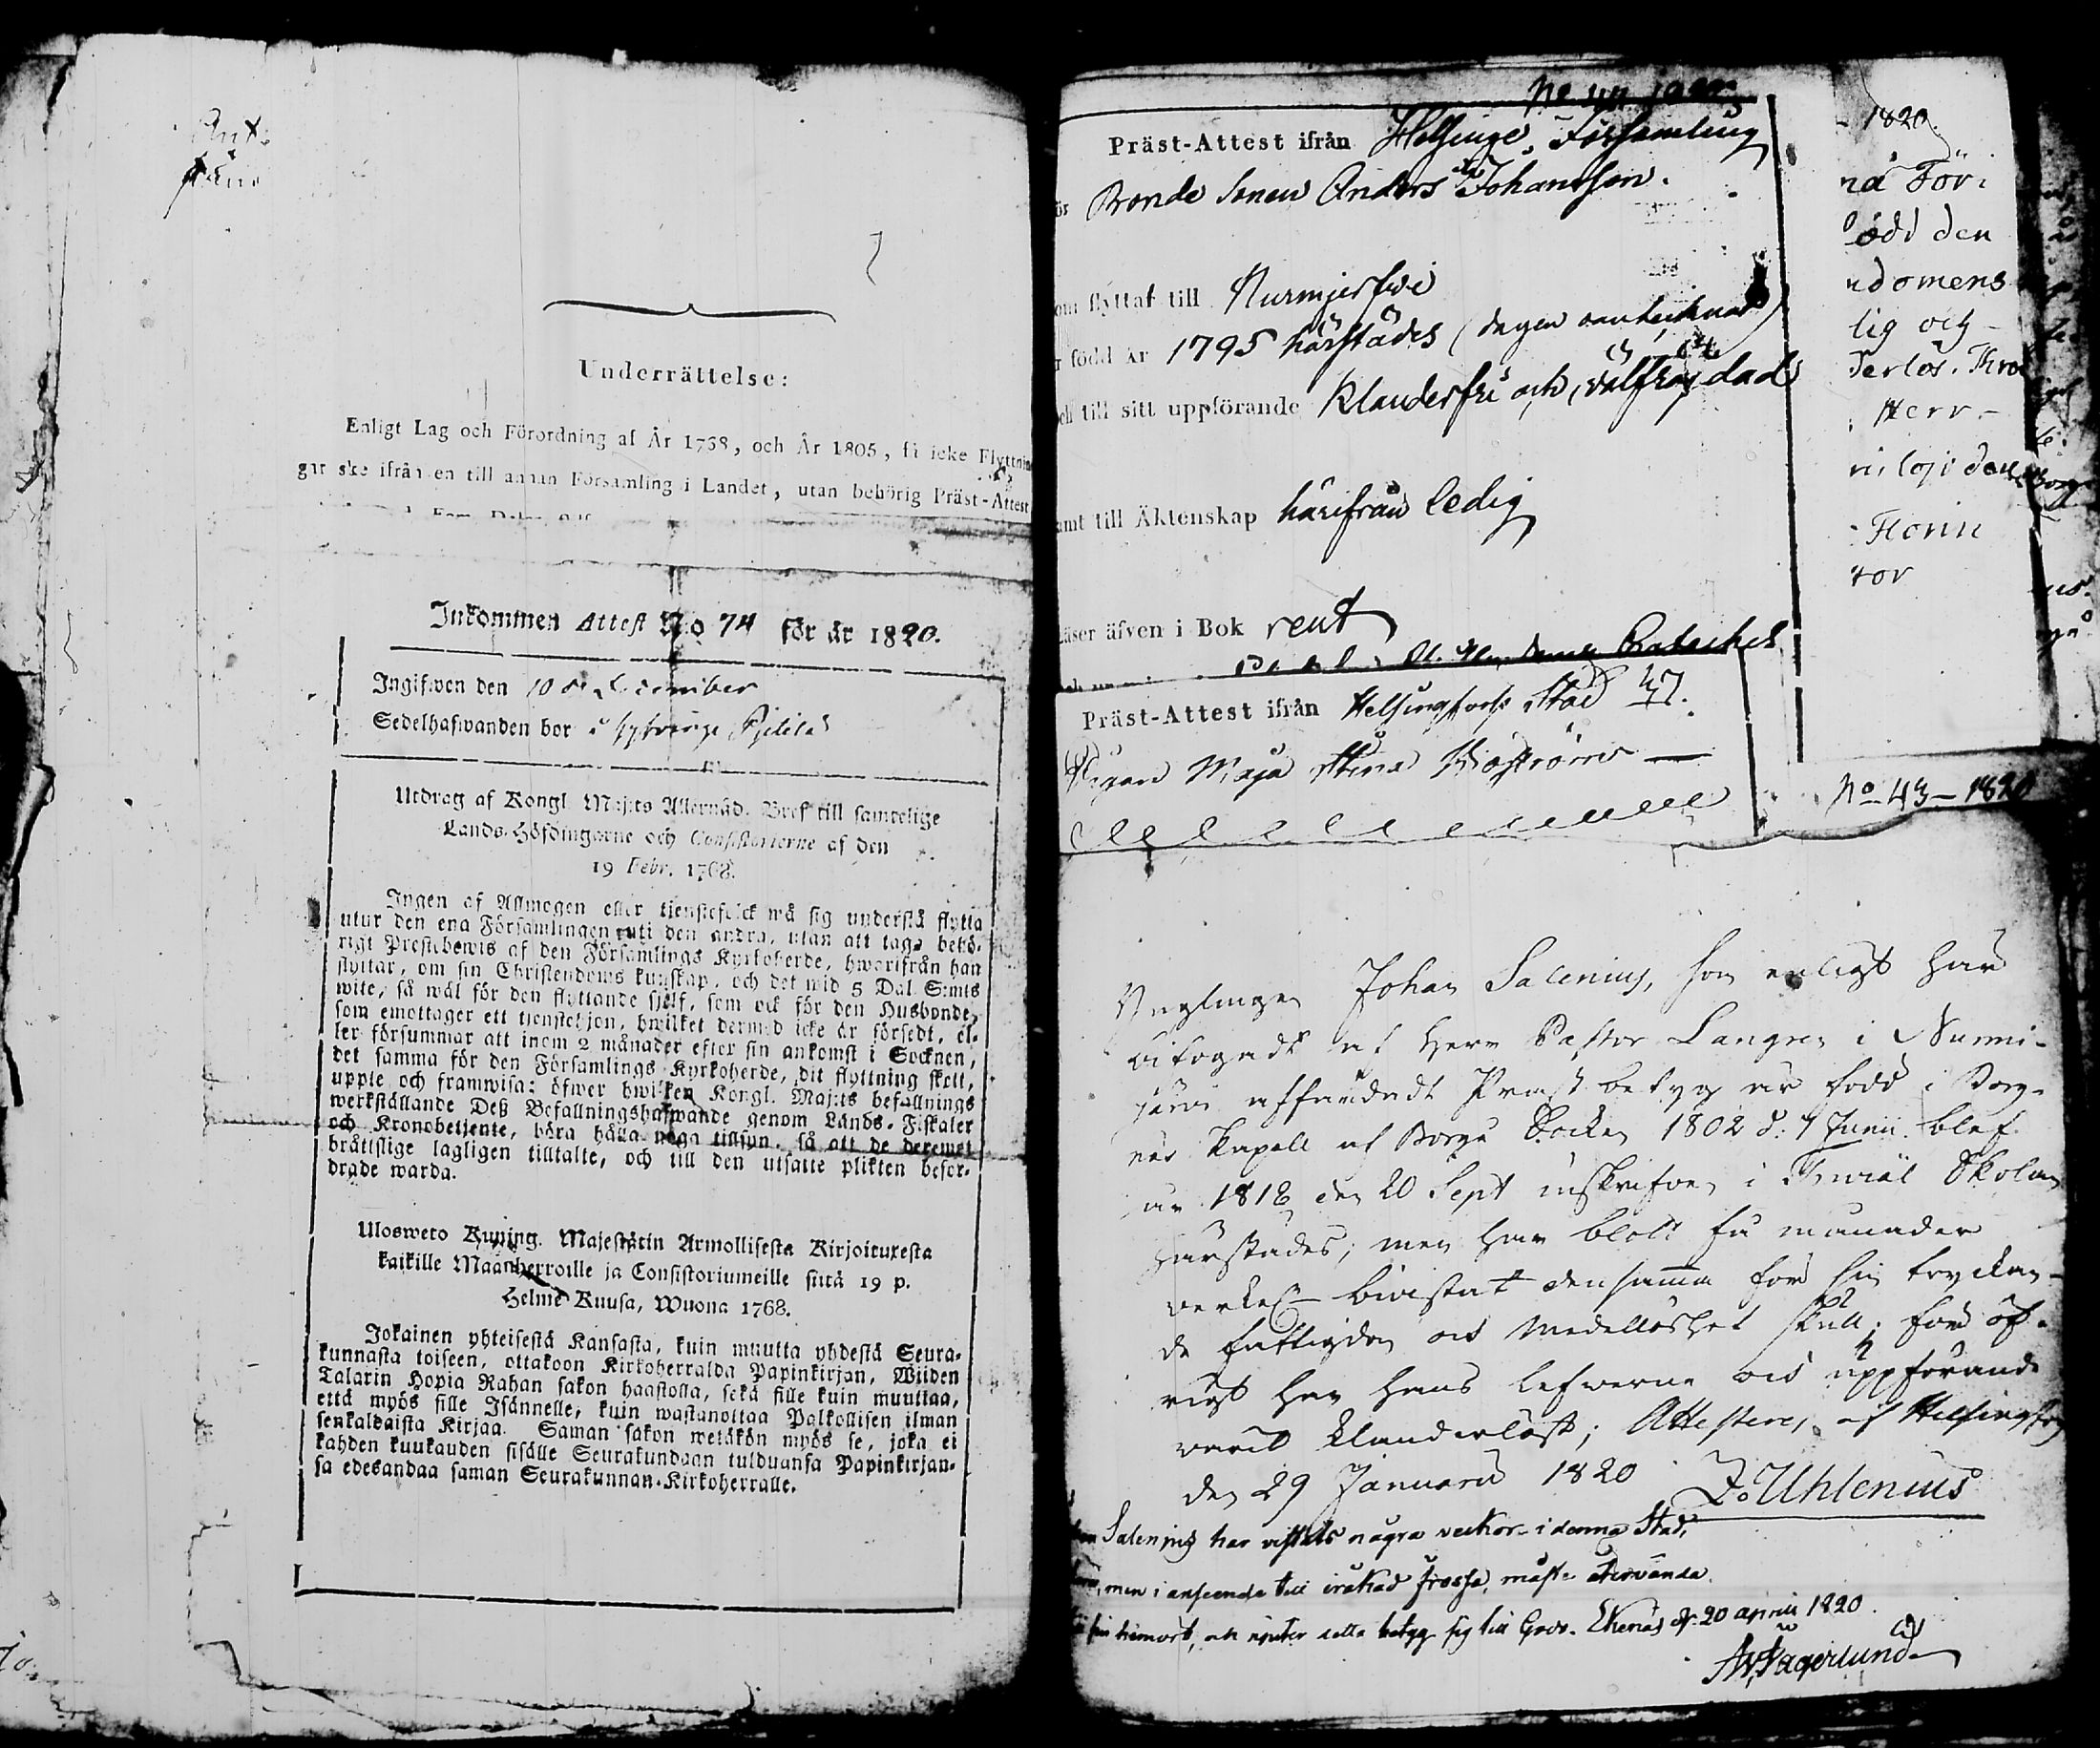 Underrättelse:
Enligt Lag och Förordning af År 1768, och År 1805, få icke Flyttnin
gar ske ifrån en till annan Församling i Landet, utan behörig Präst-Attest
Inkommen Attest No 74 för år 1820.
Ingifwen den 10 December
Sedelhafwanden bor i
Utdrag af Kongl. Maj:ts Allernåd. Bref till samtelige
Lands-Höfdingarne och Consistorierne af den
19 Febr. 1768.
Ingen af Allmogen eller tjenstefolck må sig understå flytta
utur den ena Församlingen uti den andra, utan att taga behö-
rigt Prestebewis af den Församlings Kyrkoherde, hwarifrån han
flyttar, om sin Christendoms kunskap, och det wid 5 Dal. S:mts
wite, så wäl för den flyttande sjelf, som ock för den Husbonde,
som emottager ett tjenstehjon, hwilket dermed icke är försedt, el-
ler försummar att inom 2 månader efter sin ankomst i Socknen,
det samma för den Församlings Kyrkoherde, dit flyttning skett,
uppte och framwisa: öfwer hwilken Kongl. Maj:ts befallnings
werkställande Deß Befallningshafwande genom Lands-Fiskaler
och Kronobetjente, böra hålla noga tillsyn, så att de deremot
bråttslige lagligen tilltalte, och till den utsatte plikten befor-
drade warda.
Ulosweto Kuning. Majestätin Armollisesta Kirjoituxesta
kaikille Maanherroille ja Consistoriumeille siitä 19 p.
Helme Kuusa, Wuona 1768.
Jokainen yhteisestä Kansasta, kuin muutta yhdestä Seura-
kunnasta toiseen, ottakoon Kirkoherralda Papinkirjan, Wiiden
Talarin Hopia Rahan sakon haastolla, sekä sille kuin muuttaa,
että myös sille Isännelle, kuin wastanottaa Palkollisen ilman
senkaldaista Kirjaa. Saman sakon wetäkön myös se, joka ei
kahden kuukauden sisälle Seurakundaan tulduansa Papinkirjan-
sa edesandaa saman Seurakunnan-Kirkoherralle.
Präst-Attest ifrån Helsinge Församling
ör Bonde Sonen Anders Johansson.
om flyttat till Nurmjerfwi
r född år 1795 härstädes (dagen oantecknad)
ch till sitt uppförande Klanderfri och välfräjdad
amt till Äktenskap härifrån ledig
Läser äfven i Bok rent
Präst-Attest ifrån Helsingfors Stad 47.
Pigan Maja Stina Boströms
1820.
nå För:
född den
domens
lig och
derlös. Fro
Herr
Florin
tor
No 43 – 1820
Ynglingen Johan Salenius, som enligt här
bifogadt af Herr Pastor Langren i Nurmi-
järvi affärdadt Prest betyg är född i Borg-
nes Kapell af Borgå Socken 1802 d. 7 Junii. blef
år 1818 den 20 Sept inskrifven i Trivial Skolan
härstädes; men har blott få månader
verkel. bivistat densamma för sin tryckan-
de fattigdom och medellöshet skull; för öf-
rigt har hans lefverne och uppförande
varit klanderlöst; Attesterer, af Helsingfors
den 29 Januarii 1820 Z. Uhlenius
Salenius har vistats några veckor i denna Stad,
men i anseende till iråkad frossa, måste återvända
till sin hemort, och njuter detta betyg sig till Godo. Ekenäs d. 20 april 1820.